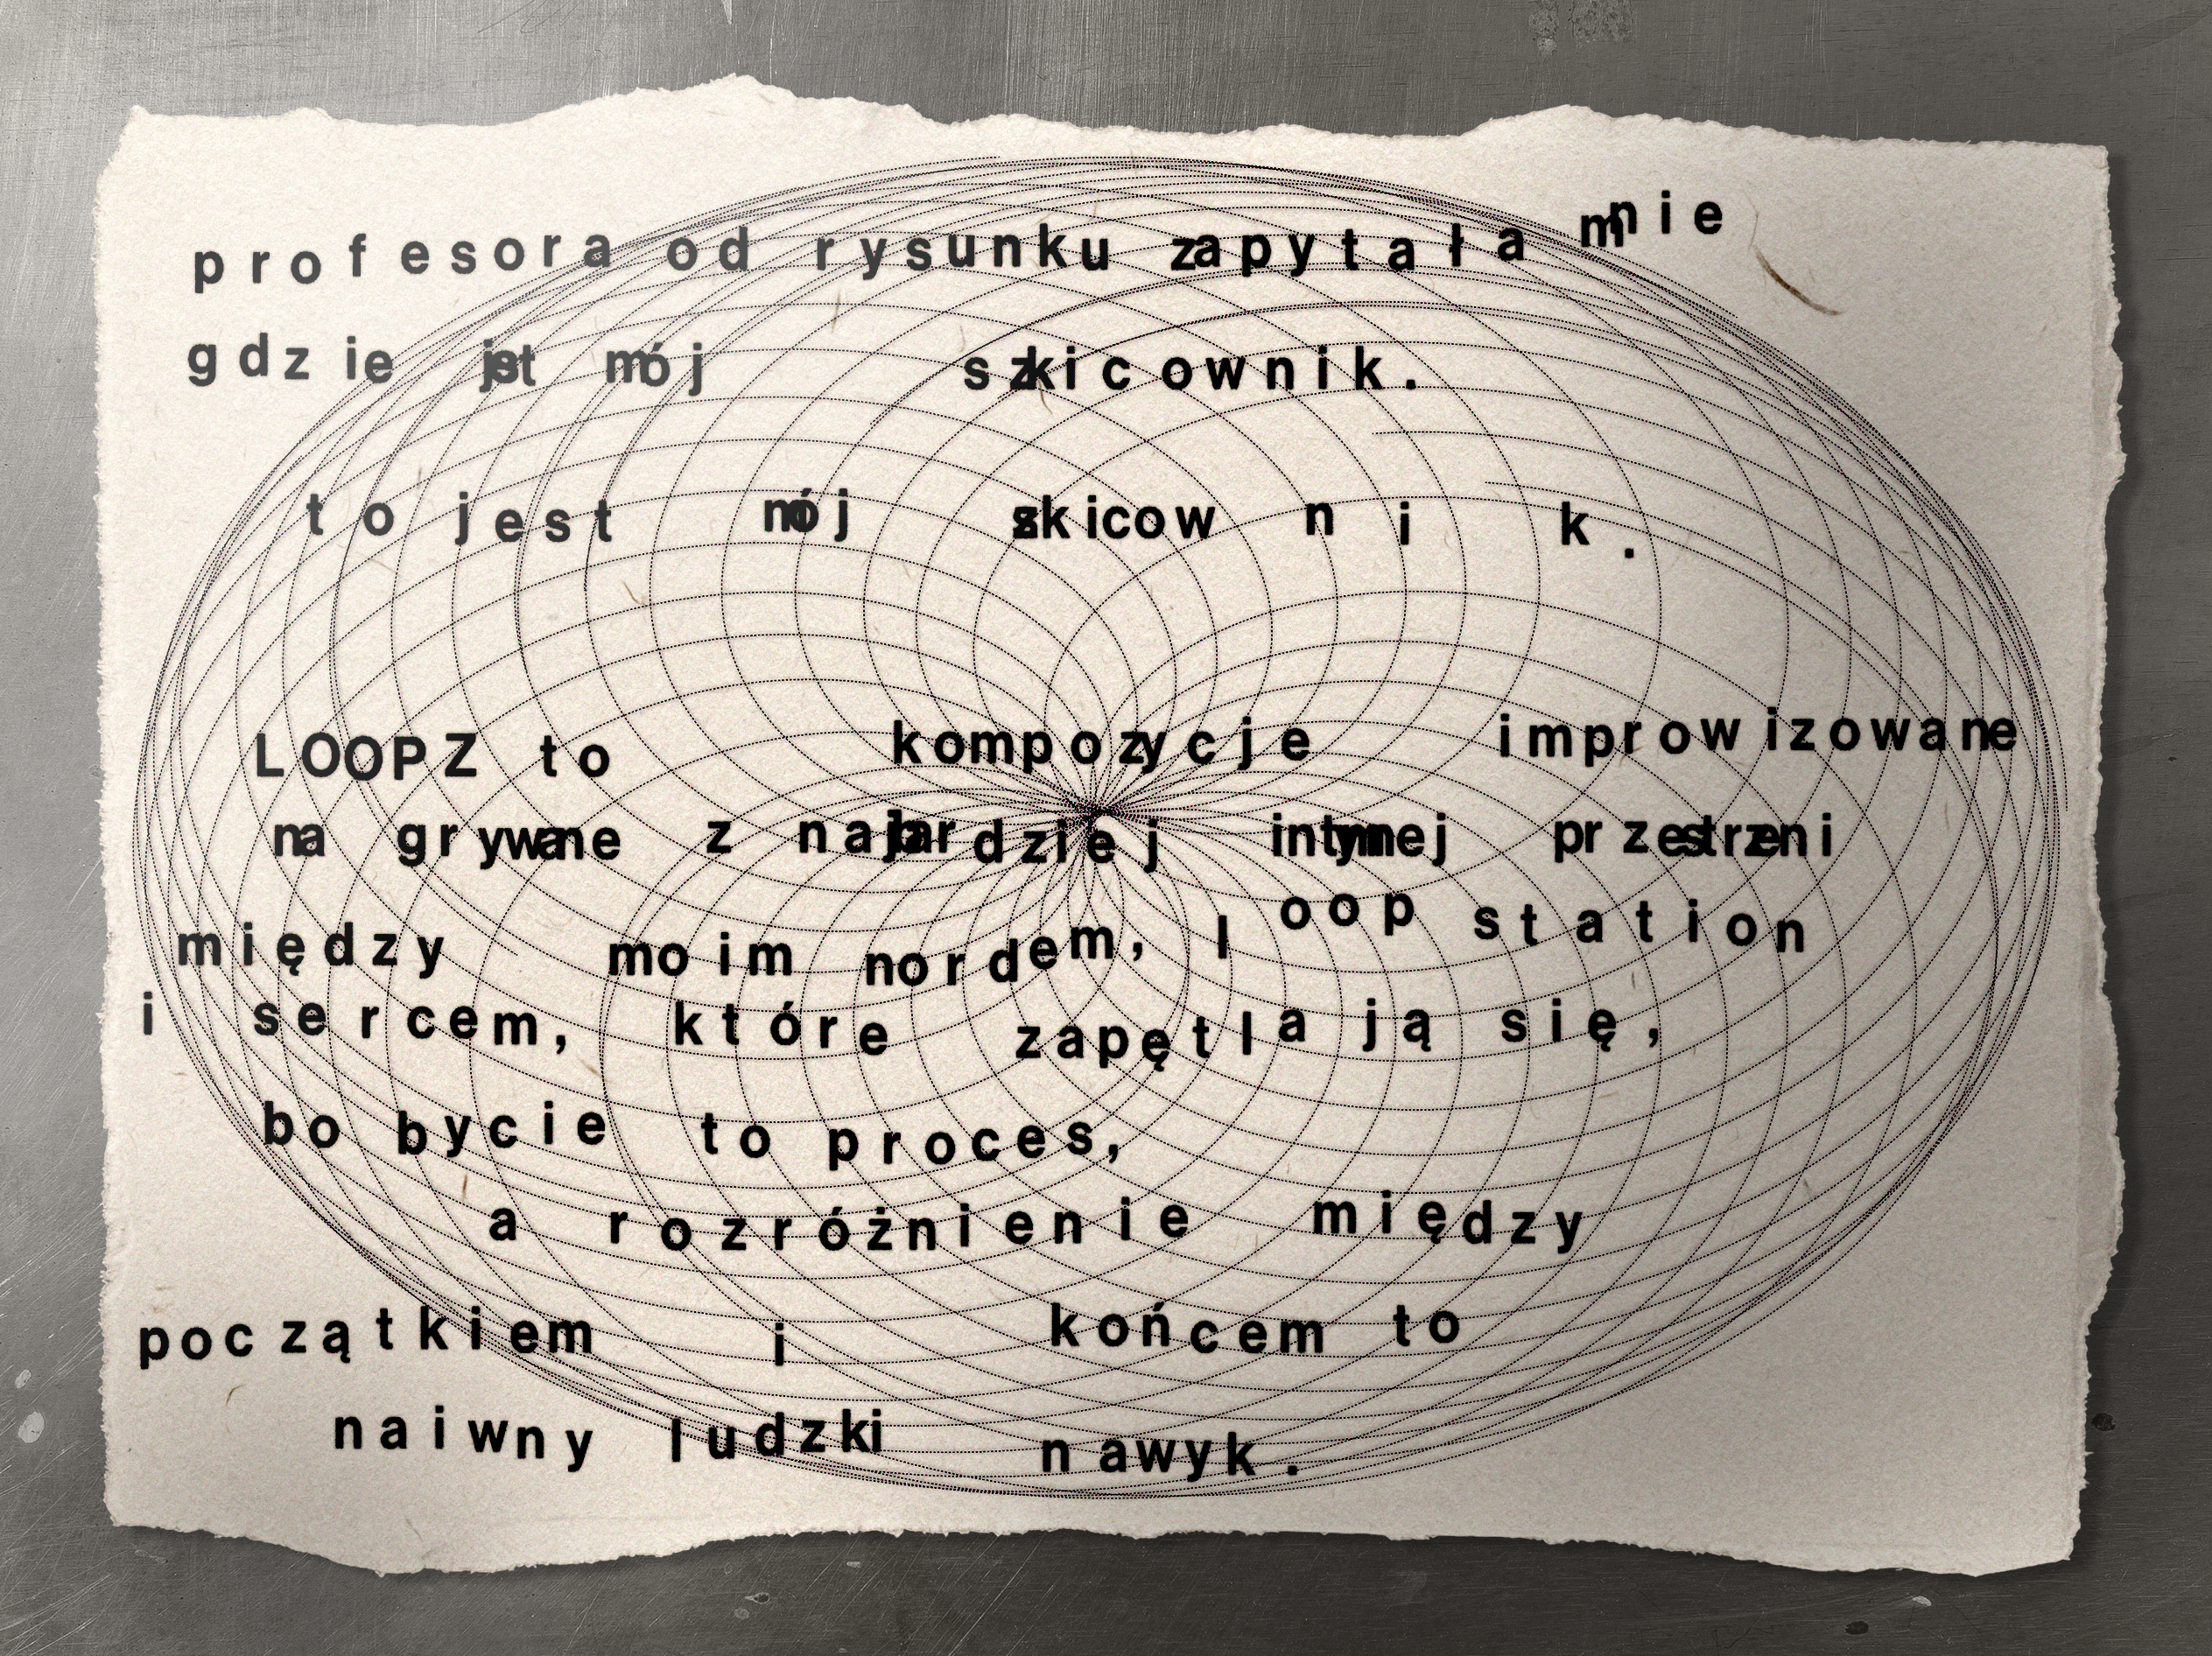 profesora od rysunku zapytała mnie
gdzie jest mój szkicownik.
to jest mój szkicownik.
LOOPZ to kompozycje improwizowane
nagrywane z najbardziej intymnej przestrzeni
między moim nordem, loop station
i sercem, które zapętlają się,
bo bycie to proces,
a rozróżnienie między
początkiem i końcem to
naiwny ludzki nawyk.